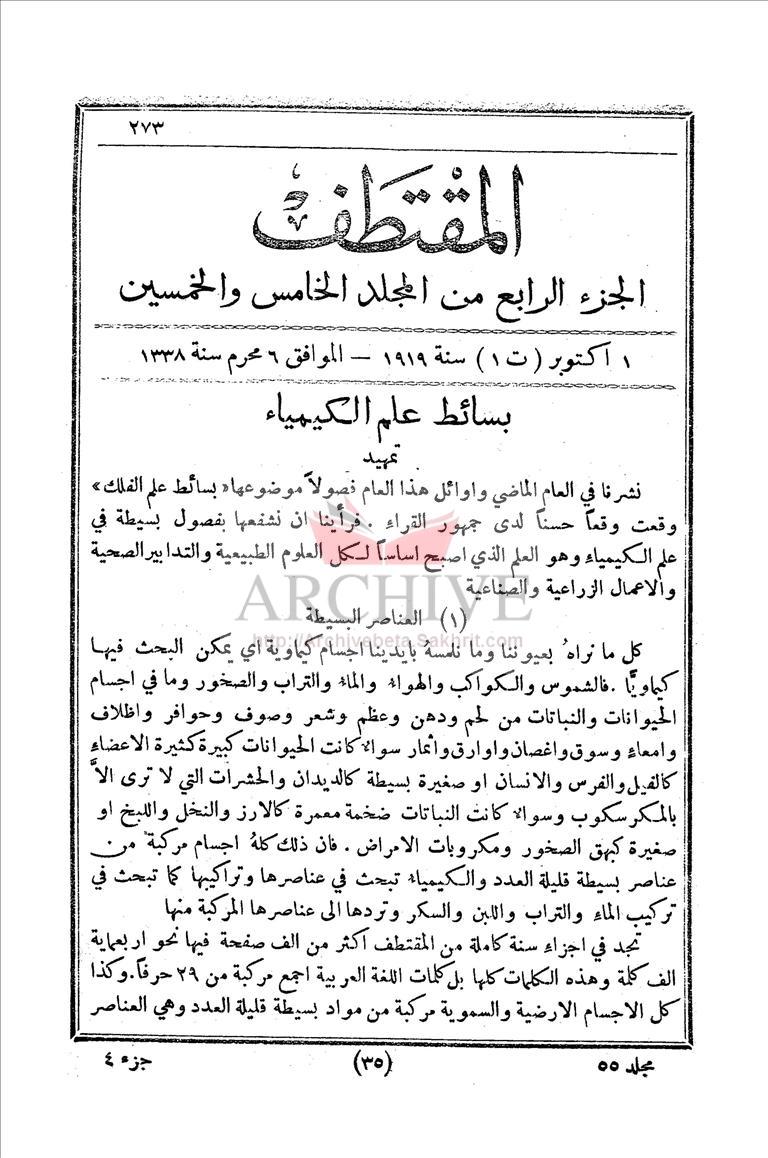 ٢٧٣
المقتطف
الجزء الرابع من المجلد الخامس والخمسين
١ اكتوبر (ت ١) سنة ١٩١٩ — الموافق ٦ محرم سنة ١٣٣٨
بسائط علم الكيمياء
تمهيد
نشرنا في العام الماضي واوائل هذا العام فصولاً موضوعها «بسائط علم الفلك»
وقعت وقعاً حسناً لدى جمهور القراء . فرأينا ان نشفعها بفصول بسيطة في
علم الكيمياء وهو العلم الذي اصبح اساساً لكل العلوم الطبيعية والتدابير الصحية
والاعمال الزراعية والصناعية
ARCHIVE
(١) العناصر البسيطة
http://Archivebeta.Sakhrit.com
كل ما نراهُ بعيوننا وما نلمسهُ بايدينا اجسام كيماوية اي يمكن البحث فيها
كيماويًّا . فالشموس والكواكب والهواء والماء والتراب والصخور وما في اجسام
الحيوانات والنباتات من لحم ودهن وعظم وشعر وصوف وحوافر واظلاف
وامعاء وسوق واغصان واوارق واثمار سواء كانت الحيوانات كبيرة كثيرة الاعضاء
كالفيل والفرس والانسان او صغيرة بسيطة كالديدان والحشرات التي لا ترى الاَّ
بالمكرسكوب وسواء كانت النباتات ضخمة معمرة كالارز والنخل واللبخ او
صغيرة كبهق الصخور ومكروبات الامراض . فان ذلك كلهُ اجسام مركبة من
عناصر بسيطة قليلة العدد والكيمياء تبحث في عناصرها وتراكيبها كما تبحث في
تركيب الماء والتراب واللبن والسكر وتردها الى عناصرها المركبة منها
تجد في اجزاء سنة كاملة من المقتطف اكثر من الف صفحة فيها نحو اربعماية
الف كلمة وهذه الكلمات كلها بل كلمات اللغة العربية اجمع مركبة من ٢٩ حرفاً. وكذا
كل الاجسام الارضية والسموية مركبة من مواد بسيطة قليلة العدد وهي العناصر
مجلد ٥٥ (٣٥) جزء ٤